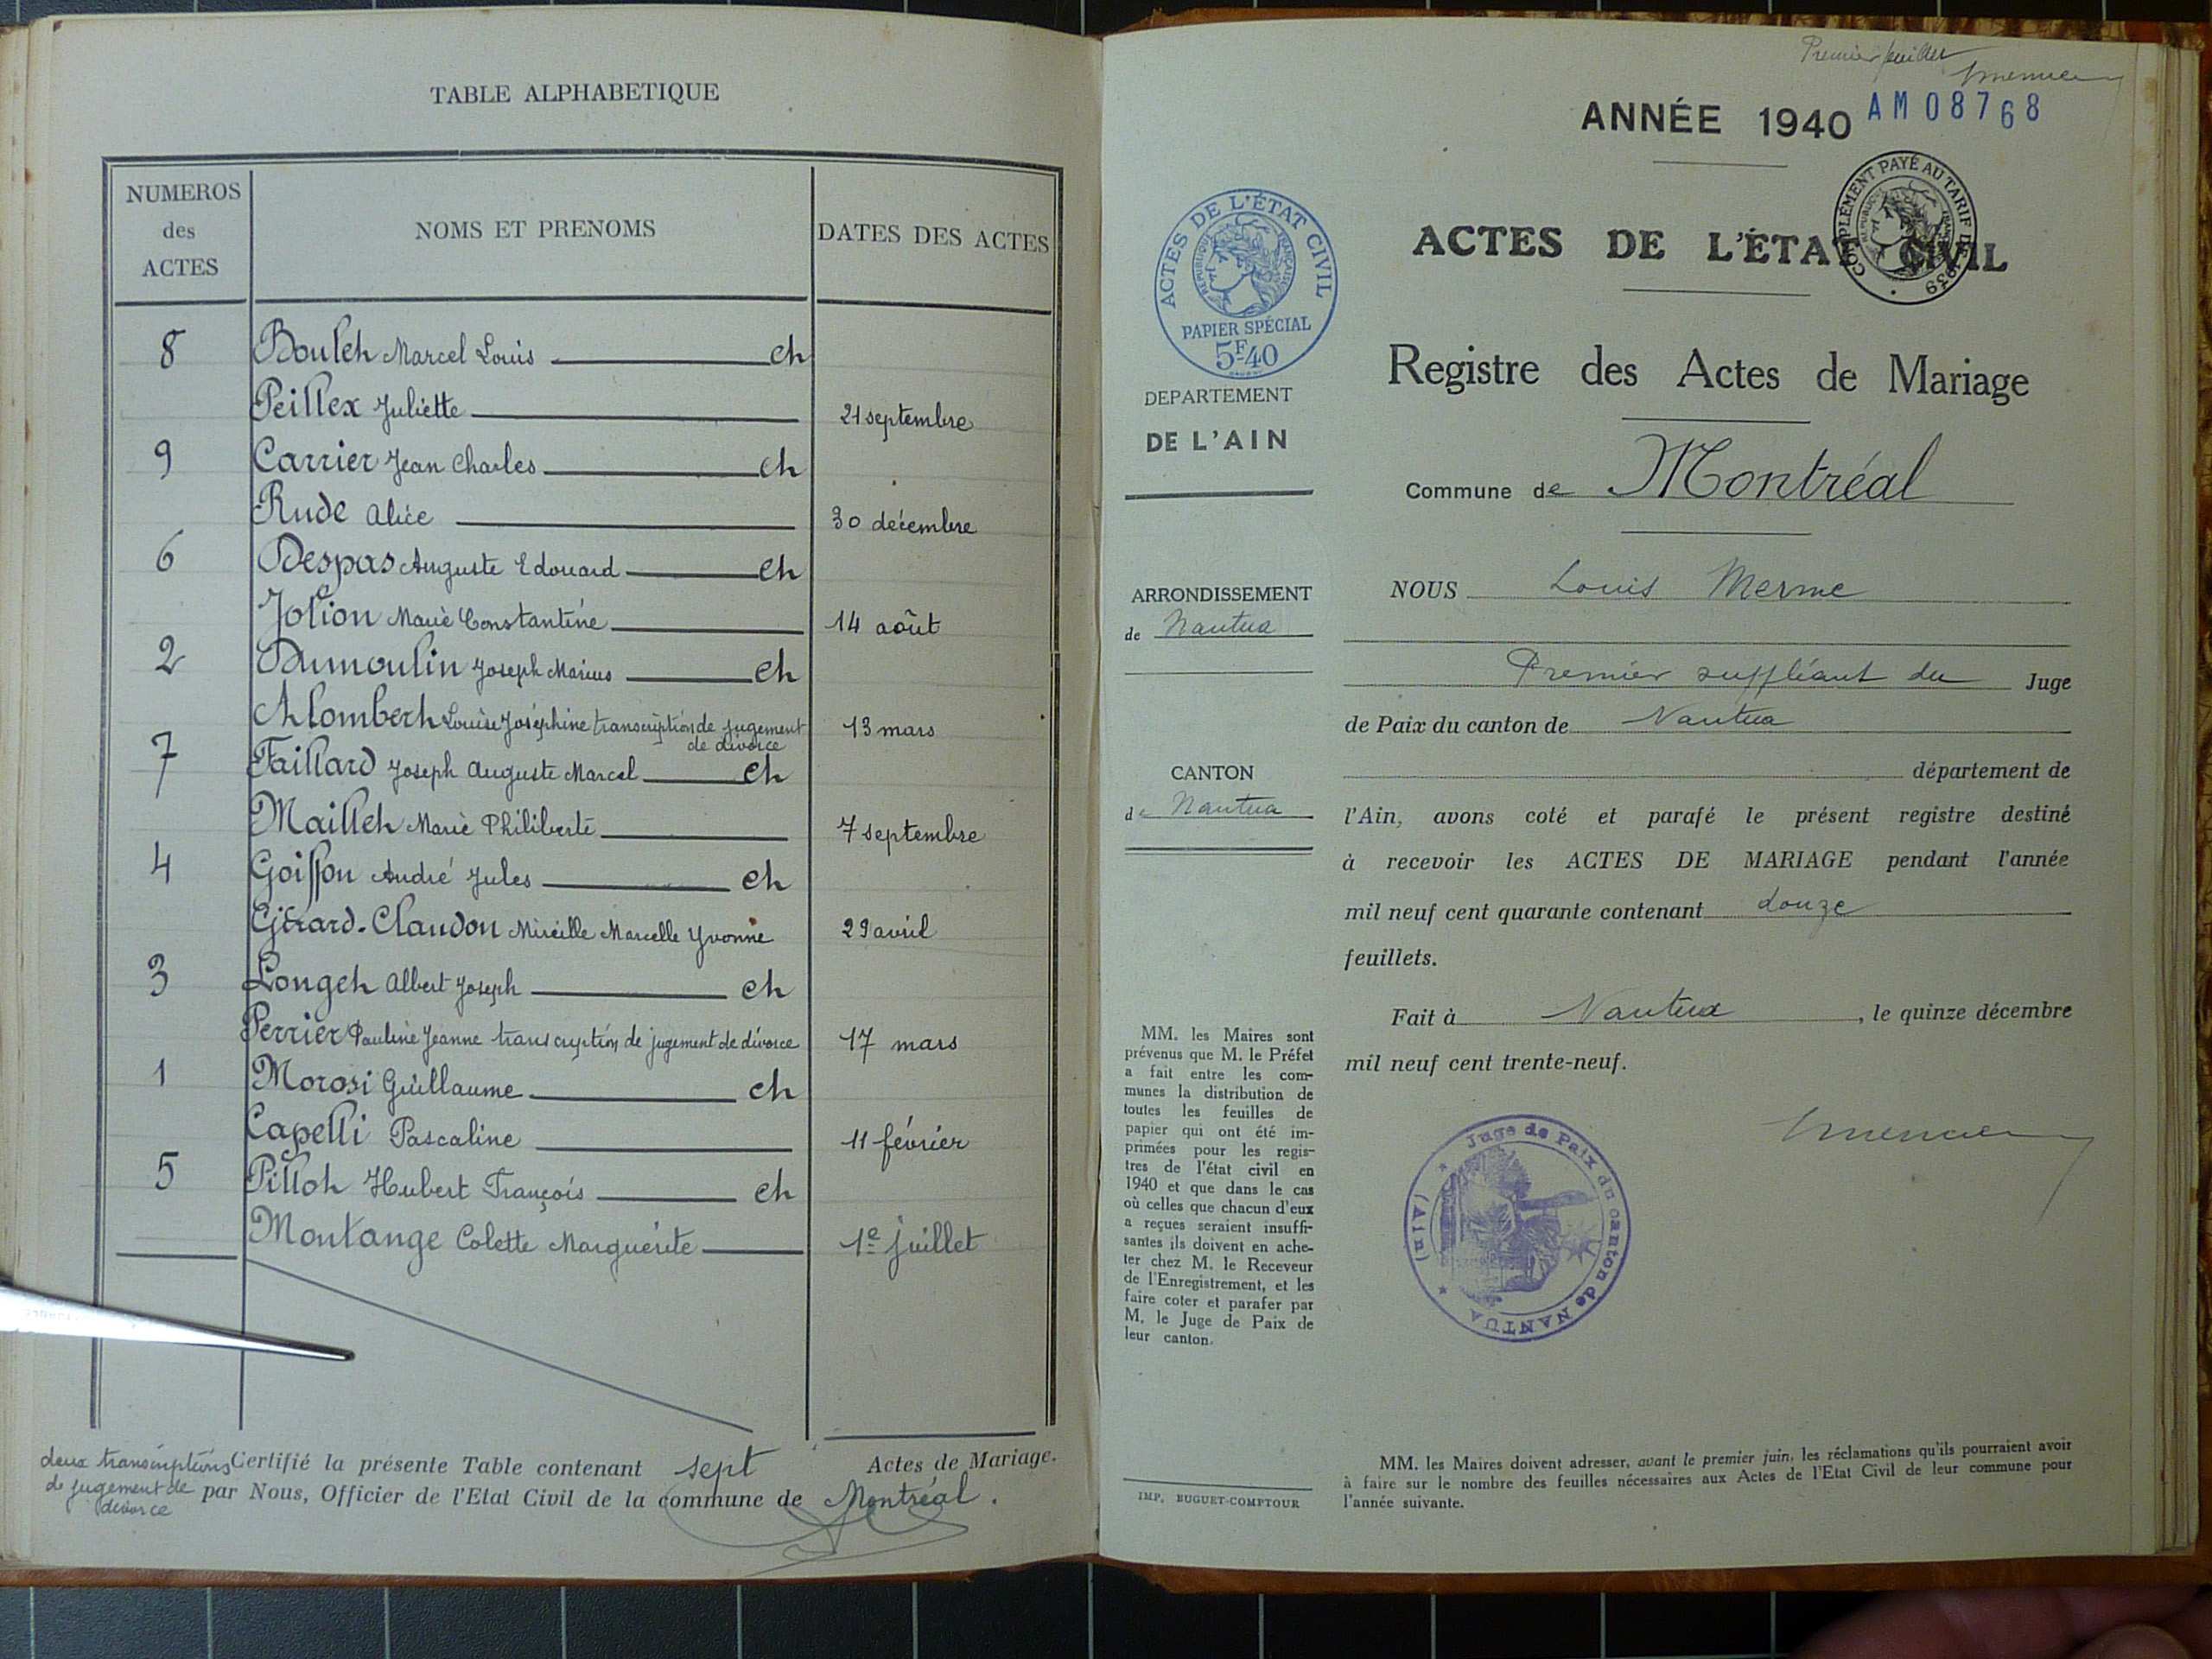 TABLE ALPHABETIQUE
NUMEROS des ACTES
NOMS ET PRENOMS
DATES DES ACTES
8 Boulet Marcel Louis et
Peillex Juliette 21 septembre
9 Carrier Jean Charles et
Rude Alice 30 décembre
6 Despas Auguste Edouard et
Jolion Marie Constantine 14 août
2 Dumoulin Joseph Marius et
Alombert Louise Joséphine transcription de jugement de divorce 13 mars
7 Faillard Joseph Auguste Marcel et
Maillet Marie Philiberte 7 septembre
4 Goiffon André Jules et
Girard-Claudon Mireille Marcelle Yvonne 29 avril
3 Longet Albert Joseph et
Perrier Pauline Jeanne transcription de jugement de divorce 17 mars
1 Morosi Guillaume et
Capelli Pascaline 11 février
5 Pillot Hubert François et
Montange Colette Marguerite 1e juillet
deux transcriptions de jugement de divorce
Certifié la présente Table contenant sept Actes de Mariage.
par Nous, Officier de l'Etat Civil de la commune de Montréal.
Premier feuillet
ANNÉE 1940 AM08768
COMPLÉMENT PAYÉ AU TARIF DE 1939
ACTES DE L'ÉTAT CIVIL
ACTES DE L'ÉTAT CIVIL
RÉPUBLIQUE FRANÇAISE
PAPIER SPÉCIAL
5F40
Registre des Actes de Mariage
DEPARTEMENT
DE L'AIN
Commune de Montréal
ARRONDISSEMENT
de Nantua
CANTON
de Nantua
NOUS Louis Merme
Premier suppléant du Juge
de Paix du canton de Nantua
département de
l'Ain, avons coté et parafé le présent registre destiné
à recevoir les ACTES DE MARIAGE pendant l'année
mil neuf cent quarante contenant douze
feuillets.
Fait à Nantua, le quinze décembre
mil neuf cent trente-neuf.
MM. les Maires sont
prévenus que M. le Préfet
a fait entre les com-
munes la distribution de
toutes les feuilles de
papier qui ont été im-
primées pour les regis-
tres de l'état civil en
1940 et que dans le cas
où celles que chacun d'eux
a reçues seraient insuffi-
santes ils doivent en ache-
ter chez M. le Receveur
de l'Enregistrement, et les
faire coter et parafer par
M. le Juge de Paix de
leur canton.
Juge de Paix du canton de NANTUA (Ain)
MM. les Maires doivent adresser, avant le premier juin, les réclamations qu'ils pourraient avoir
à faire sur le nombre des feuilles nécessaires aux Actes de l'Etat Civil de leur commune pour
l'année suivante.
IMP. BUGUET-COMPTOUR